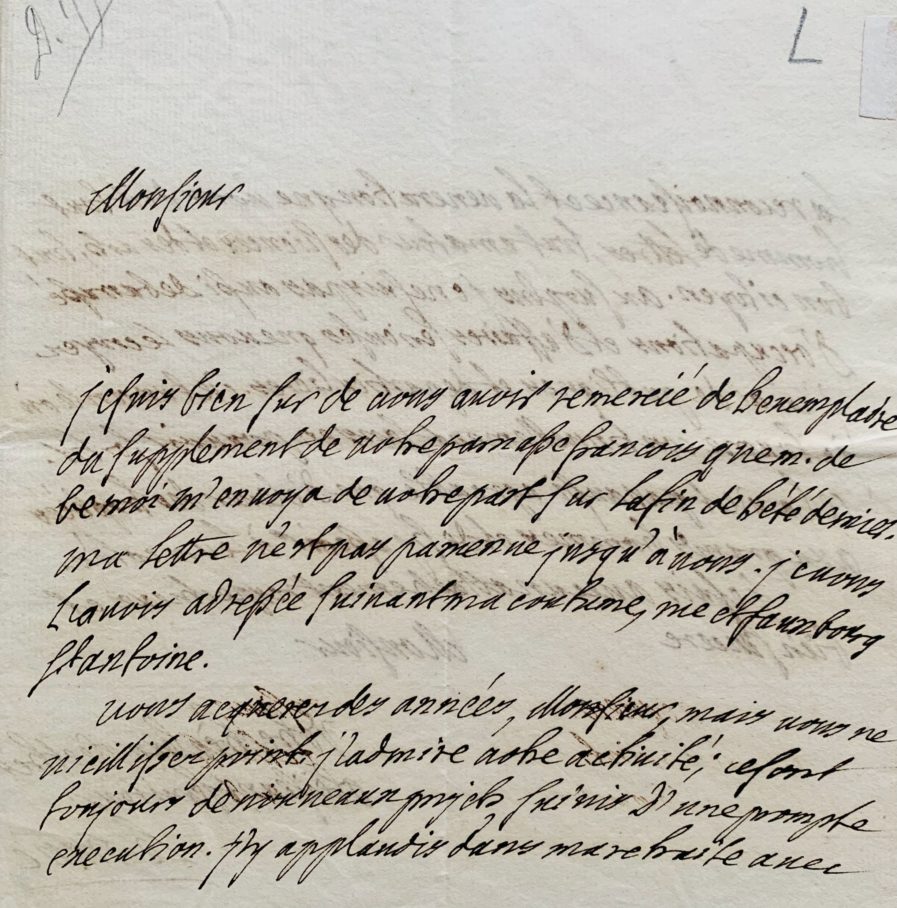 L
Monsieur
je suis bien sur de vous avoir remercié de l'exemplaire
du supplement de votre parnasse francois que m. de
m'envoya de votre part sur la fin de l'été dernier.
ma lettre n'est pas parvenue jusqu'à vous. je vous
l'avois adressée suivant ma coutume, rue et fauxbourg
St antoine.
vous acquerer des années, Monsieur, mais vous ne
vieillisser point. j'admire votre activité; ce sont
toujours de nouveaux projets suivis d'une prompte
execution. j'y applaudis dans ma retraite avec